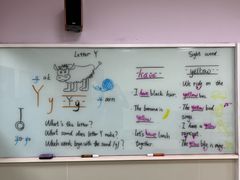 Letter Y
Sight word
Y y
Yy
arn
yo-yo
What's the letter?
What sound does letter Y make?
Which words begin with the sound /y/?
have
I have black hair.
The banana is
Let's have lunch
together.
yellow
We ride on the
yellow bus.
The yellow bird
I have a yellow
The is